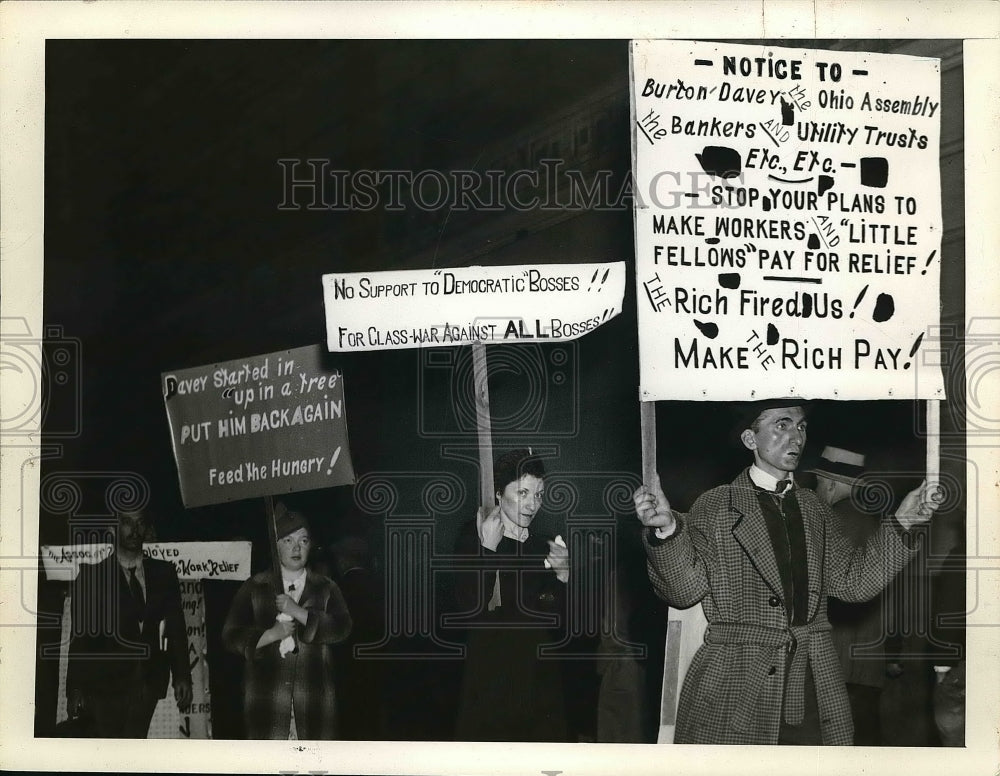 - NOTICE TO -
Burton-Davey-the Ohio Assembly
the Bankers AND Utility Trusts
Etc., Etc. -
- STOP YOUR PLANS TO
MAKE WORKERS AND "LITTLE
FELLOWS" PAY FOR RELIEF!
THE Rich Fired Us!
MAKE THE RICH PAY!
NO SUPPORT TO "DEMOCRATIC" BOSSES!!
FOR CLASS-WAR AGAINST ALL BOSSES!!
DAVEY Started in
"up in a tree"
PUT HIM BACK AGAIN
Feed the Hungry!
WORK RELIEF
HISTORIC IMAGES